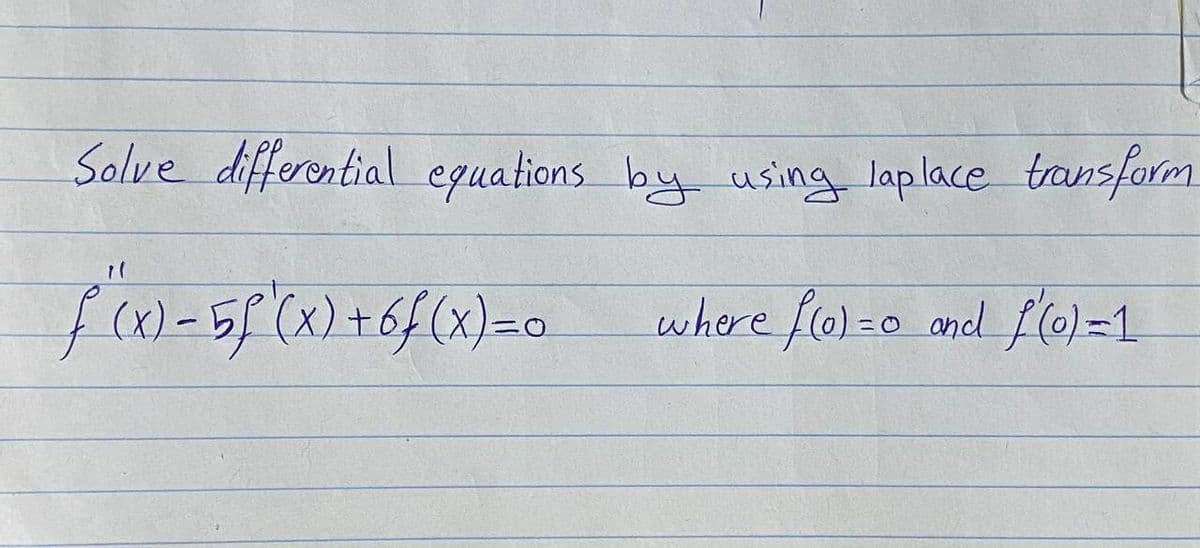 Solve differential equations by using laplace transform
f''(x) - 5f'(x) + 6f(x) = 0 where f(0) = 0 and f'(0) = 1